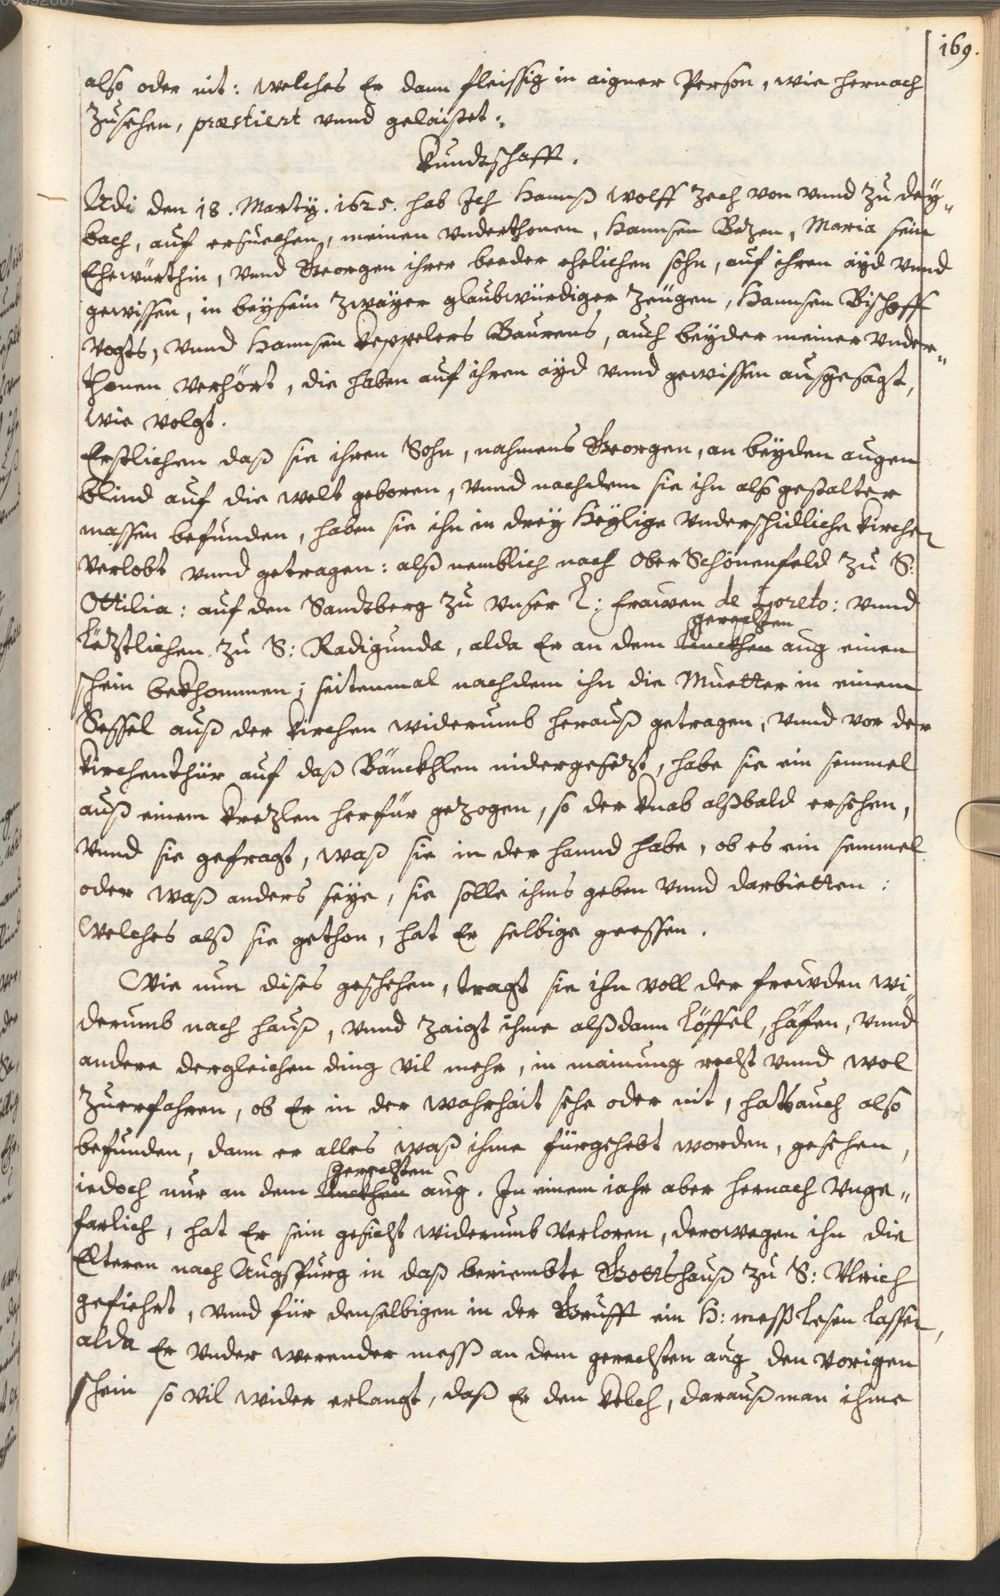 169.
also oder nit: welches Er dann fleissig in aigner Person, wie hernach
zusehen, præstiert vnnd gelaistet.
Kundtschafft.
Adi den 18. Martij. 1625. hab Ich Hannß Wolff Zech von vnnd zu Dey-
bach, auf ersuechen, meinen vnderthonen, Hannsen Bezen, Maria sein
Ehewürthin, vnnd Georgen ihrer beeder ehelichen sohn, auf ihren ayd vnnd
gewissen, in beysein zwayer glaubwürdiger zeugen, Hannsen Bischoff
Vogts, vnnd Hannsen Keppelers Baurens, auch beyder meiner vnder-
thonen verhört, die haben auf ihren ayd vnnd gewissen ausgesagt,
wie volgt.
Erstlichen daß sie ihren Sohn, nahmens Georgen, an beyden augen
blind auf die welt geboren, vnnd nachdem sie ihn also gestalter
massen befunden, haben sie ihn in drey Heylige vnderschidliche Kirchen
verlobt vnnd getragen: alß nemblich nach Ober Schönenfeld zu S:
Ottilia: auf den Sandtberg zu vnser L: frawen de Loreto: vnnd
gerechten
Letztlichen zu S: Radigunda, alda Er an dem linckhen aug einen
schein bekhommen; seitenmal nachdem ihn die Muetter in einem
Sessel auß der Kirchen widerumb herauß getragen, vnnd vor der
Kirchenthür auf daß Bänckhlen nidergesezt, habe sie ein semmel
auß einem Krezlen herfür gezogen, so der Knab alßbald ersehen,
vnnd sie gefragt, waß sie in der hannd habe, ob es ein semmel
oder waß anders seye, sie solle ihms geben vnnd darbietten:
Welches alß sie gethon, hat Er selbige geessen.
Wie nun dises geschehen, tragt sie ihn voll der frewden wi
derumb nach hauß, vnnd zaigt ihme alßdann löffel, häfen, vnnd
andere dergleichen ding vil mehr, in mainung recht vnnd wol
zuerfahren, ob Er in der wahrhait sehe oder nit, hats auch also
befunden, dann er alles waß ihme fürgehebt worden, gesehen,
gerechten
iedoch nur an dem linckhen aug. In einem iahr aber hernach vnge-
farlich, hat Er sein gesicht widerumb verloren, derowegen ihn die
Elteren nach Augspurg in daß beriembte Gottshauß zu S: Vlrich
gefiehrt, vnnd für denselbigen in der Grufft ein H: mess lesen lassen,
alda Er vnder werender mess an dem gerechten aug den vorigen
schein so vil wider erlangt, daß Er den Kelch, darauß man ihme